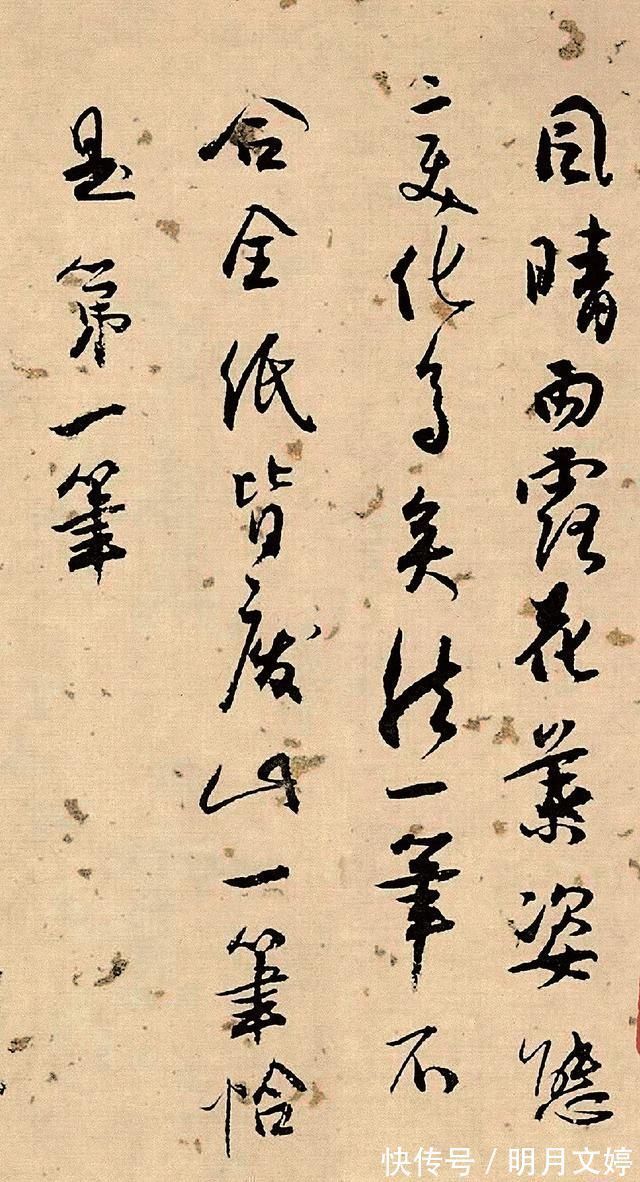 風晴雨露花葉姿態
變化多矣然一筆不
合全紙皆廢此一筆恰
是第一筆
快传号/明月文婷